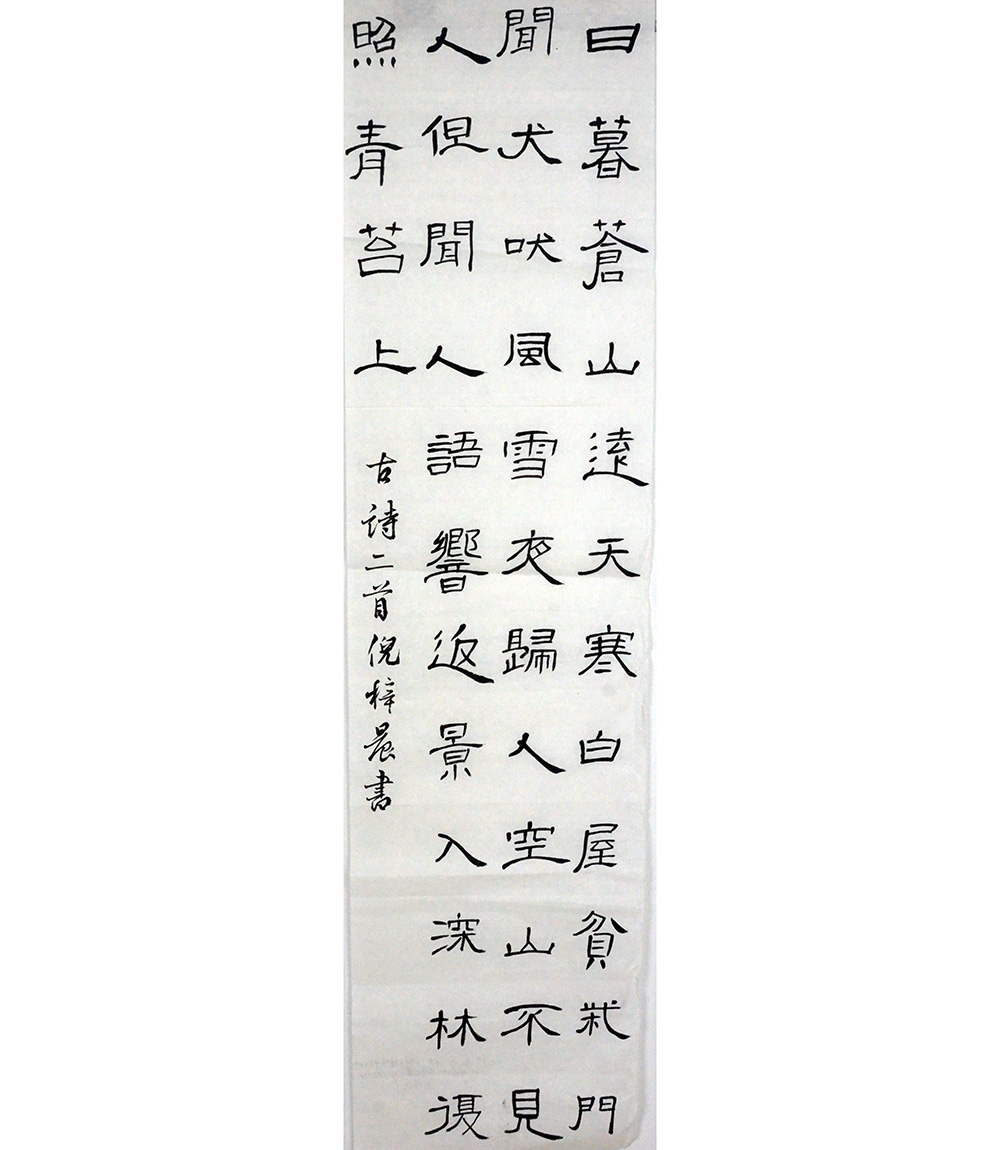 日暮蒼山遠天寒白屋貧柴門
聞犬吠風雪夜歸人空山不見
人但聞人語響返景入深林復
照青苔上
古詩二首倪梓晨書